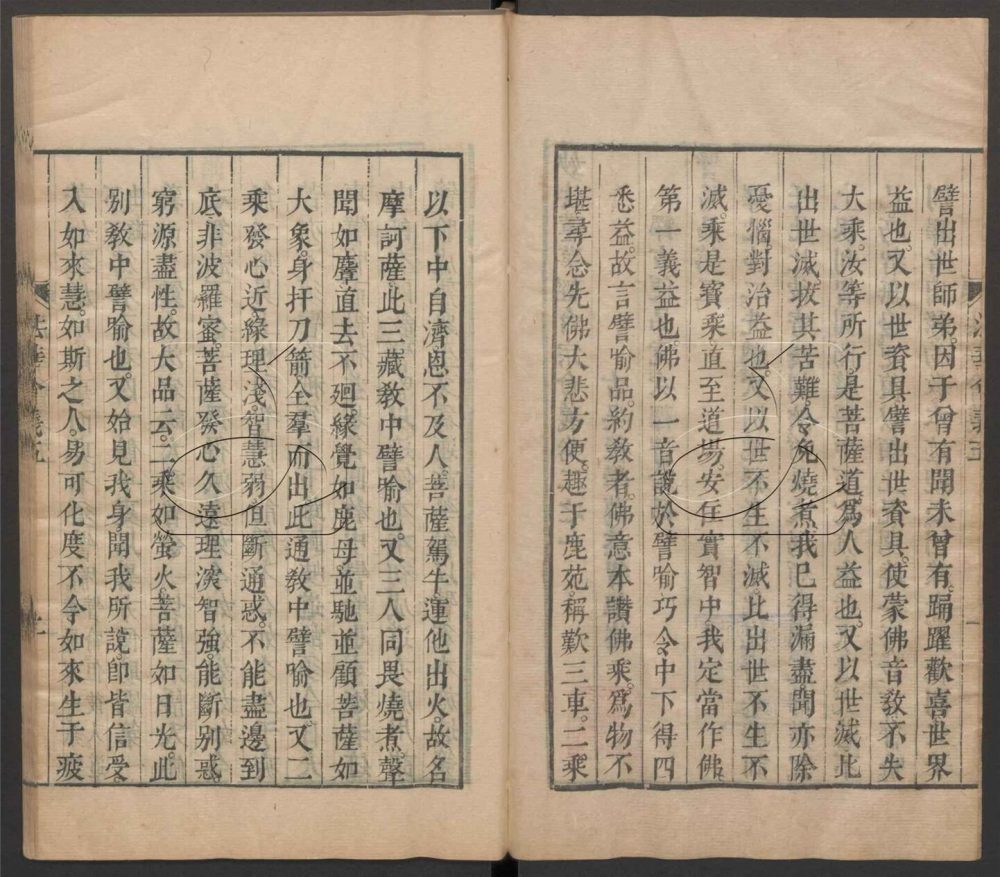 譬出世師弟。因于曾有聞未曾有。踊躍歡喜世界
益也。又以世資具譬出世資具。使蒙佛音教。不失
大乘。汝等所行。是菩薩道。爲人益也。又以世滅比
出世滅。拔其苦難。令免燒煮。我已得漏盡。聞亦除
憂惱。對治益也。又以世不生不滅比出世不生不
滅。乘是寶乘。直至道場。安住實智中。我定當作佛。
第一義益也。佛以一音。說於譬喻。巧令中下得四
悉益。故言譬喻品。約教者。佛意本讚佛乘。爲物不
堪。尋念先佛大悲方便。趣于鹿苑。稱歎三車。二乘
以下中自濟。恩不及人。菩薩駕牛。運他出火。故名
摩訶薩。此三藏教中譬喻也。又三人同畏燒煮。聲
聞如麞。直去不迴。緣覺如鹿。母並馳並顧。菩薩如
大象。身扞刀箭。全羣而出。此通教中譬喻也。又二
乘發心近。緣理淺。智慧弱。但斷通惑。不能盡邊到
底。非波羅蜜。菩薩發心久遠。理深智強。能斷別惑。
窮源盡性。故大品云。二乘如螢火。菩薩如日光。此
別教中譬喻也。又始見我身。聞我所說。即皆信受
入如來慧。如斯之人。易可化度。不令如來生于疲